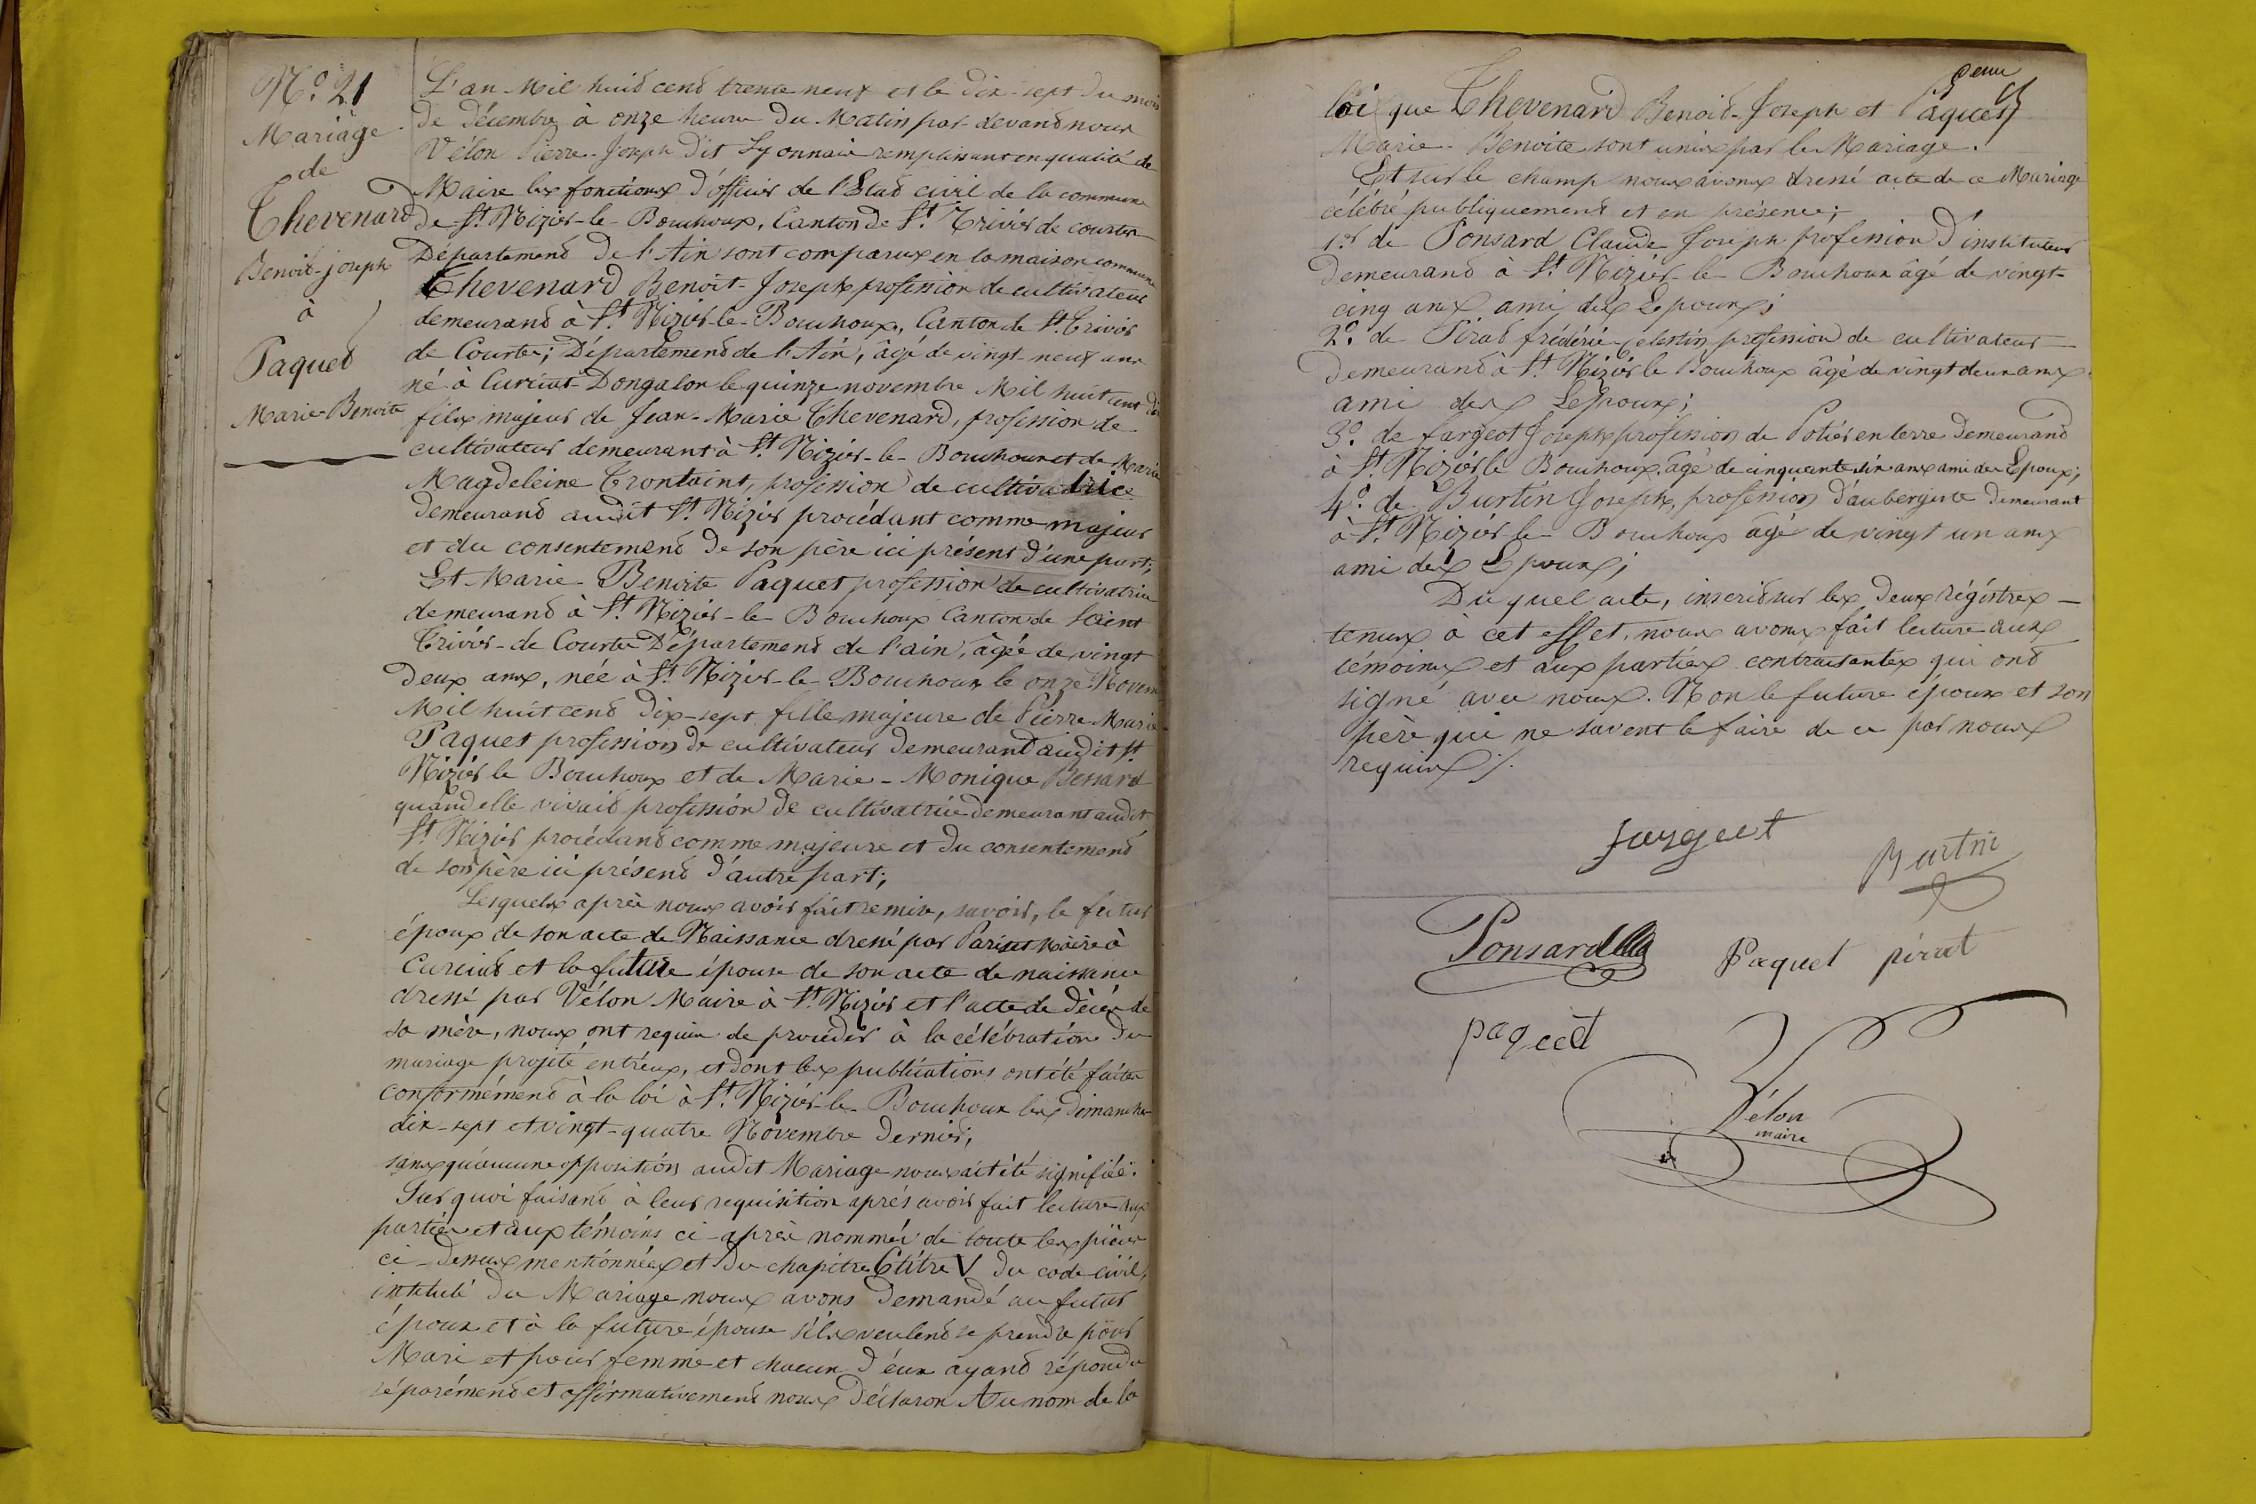 N.° 21
Mariage
de
Thevenard
Benoit-joseph
à
Paquet
Marie-Benoite
L'an Mil huit cent trente neuf et le dix-sept du mois
de décembre à onze heure du Matin par-devant nous
Vélon Pierre-Joseph dit Lyonnais remplissant en qualité de
Maire les fonctions d'officier de l'Etat civil de la commune
de St. Nizier-le-Bouchoux, Canton de St. Trivier de courtes
Département de l'Ain sont comparus en la maison commune
Thevenard Benoit-Joseph profession de cultivateur
demeurant à St. Nizier-le-Bouchoux, Canton de St. Trivier
de Courtes; Département de l'Ain, âgé de vingt-neuf ans
né à Curciat-Dongalon le quinze novembre Mil huit cent dix
fils majeur de Jean-Marie Thevenard, profession de
cultivateur demeurant à St. Nizier-le-Bouchoux et de Marie
Magdeleine Trontaint, profession de cultivatrice
demeurant audit St. Nizier procédant comme majeur
et du consentement de son père ici présent d'une part;
Et Marie-Benoite Paquet profession de cultivatrice
demeurant à St. Nizier-le-Bouchoux Canton de Saint
Trivier-de Courtes Département de l'ain, âgée de vingt
deux ans, née à St. Nizier-le-Bouchoux le onze Novem
Mil huit cent dix-sept fille majeure de Pierre Marie
Paquet profession de cultivateur demeurant audit St.
Nizier le Bouchoux et de Marie-Monique Bessard
quand elle vivait profession de cultivatrice demeurant audit
St. Nizier procédant comme majeure et du consentement
de son père ici présent d'autre part;
Lesquels après nous avoir fait remise, savoir, le futur
époux de son acte de Naissance dressé par Pariset Maire à
Curciat et la future épouse de son acte de naissance
dressé par Vélon Maire à St. Nizier et l'acte de décès de
sa mère, nous ont requis de procéder à la célébration du
mariage projeté entr'eux, et dont les publications ont été faites
conformément à la loi à St. Nizier-le-Bouchoux les dimanches
dix-sept et vingt-quatre Novembre dernier;
sans qu'aucune opposition audit Mariage nous ait été signifiée.
Sur quoi faisant à leur requisition après avoir fait lecture aux
parties et aux témoins ci-après nommés de toute les pièces
ci-dessus mentionnées et du chapitre 6 titre V du code civil,
intitulé du Mariage nous avons demandé au futur
époux et à la future épouse s'ils veulent se prendre pour
Mari et pour femme et chacun d'eux ayant répondu
séparément et affirmativement nous déclaron Au nom de la
loi que Thevenard Benoit-Joseph et Paquet
Marie-Benoite sont unis par le Mariage.
Et sur le champ nous avons dressé acte de ce Mariage
célébré publiquement et en présence;
1.er de Ponsard Claude Joseph profession d'instituteur
demeurant à St. Nizier-le-Bouchoux âgé de vingt-
cinq ans ami des Epoux;
2.° de Pirat frédéric Celestin profession de cultivateur
demeurant à St. Nizier le Bouchoux âgé de vingt deux ans
ami des Epoux;
3.° de fargeot Joseph profession de Potier en terre demeurant
à St. Nizier le Bouchoux âgé de cinquante six ans ami des Epoux;
4.° de Burtin Joseph, profession d'aubergiste demeurant
à St. Nizier-le-Bouchoux âgé de vingt un ans
ami des Epoux;
Du quel acte, inscrit sur les deux régistres
tenus à cet effet, nous avons fait lecture aux
témoins et aux parties contractantes qui ont
signé avec nous. Non le future époux et son
père qui ne savent le faire de ce par nous
requis ./.
fargeot
Burtin
Ponsard
Paquet
pirat
paquet
Vélon
maire